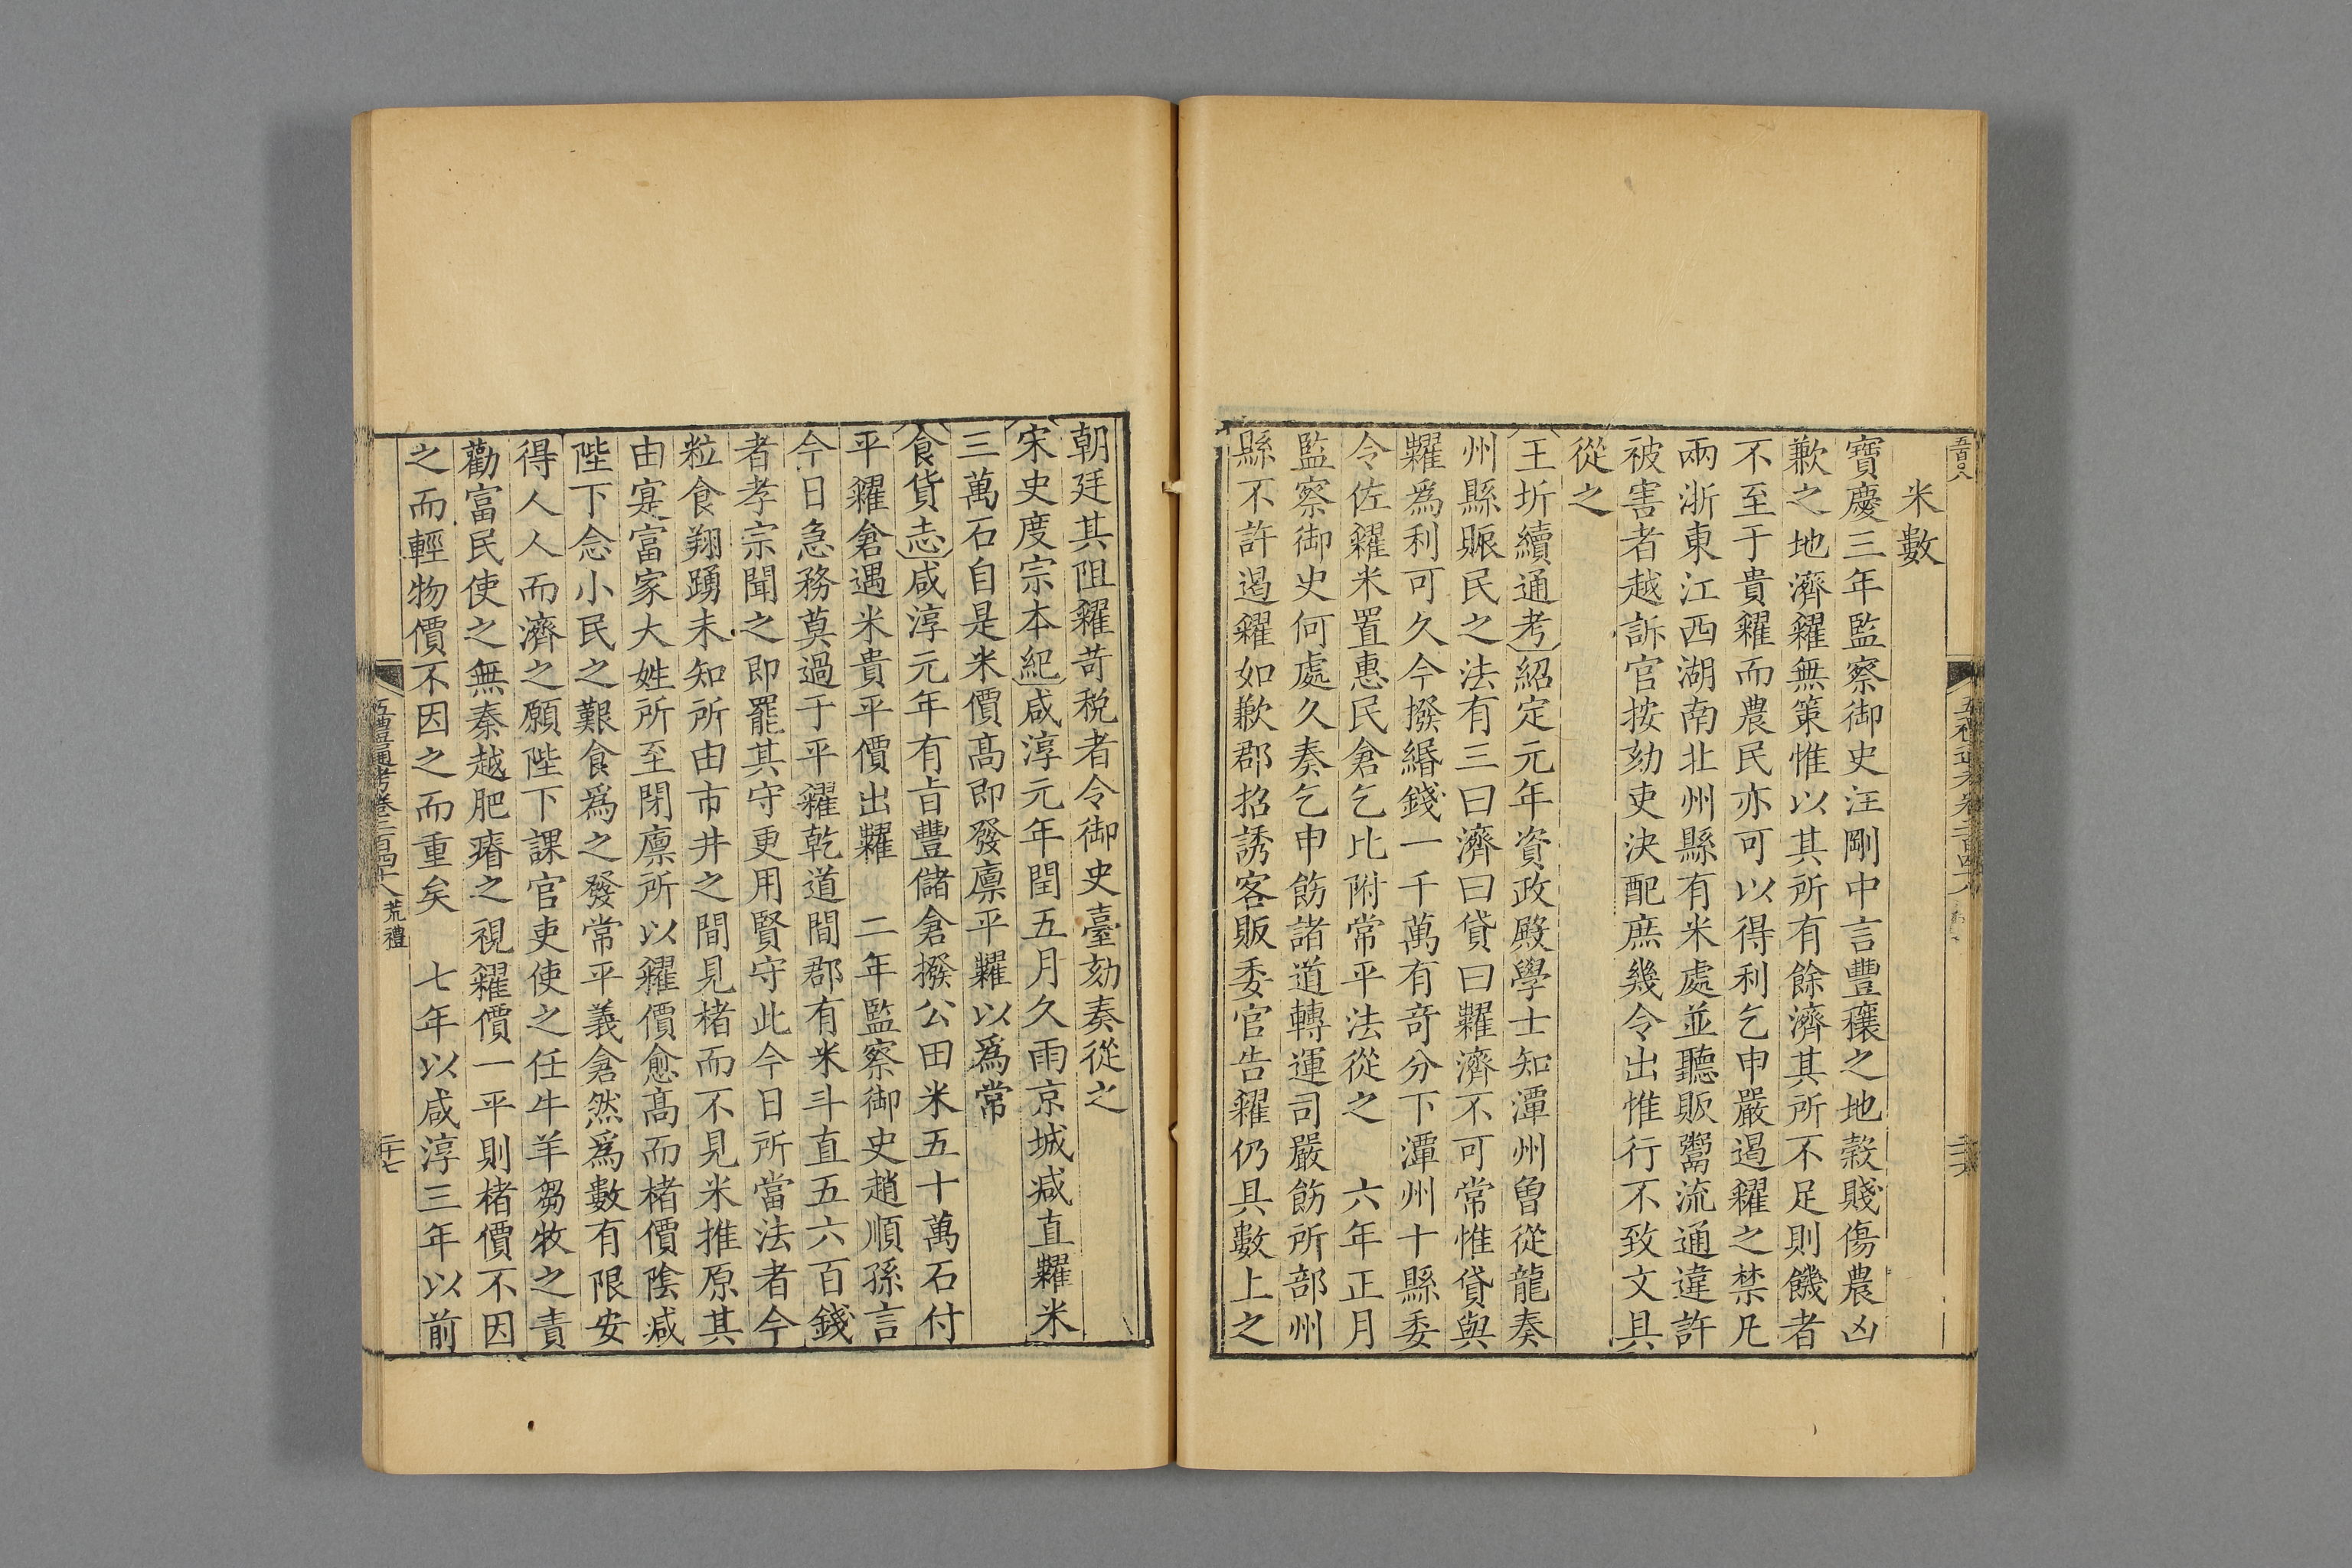 米數
寶慶三年監察御史汪剛中言豐穰之地穀賤傷農凶
歉之地濟糴無策惟以其所有餘濟其所不足則饑者
不至于貴糴而農民亦可以得利乞申嚴遏糴之禁凡
兩浙東江西湖南北州縣有米處並聽販鬻流通違許
被害者越訴官按劾吏決配庶幾令出惟行不致文具
從之
王圻續通考紹定元年資政殿學士知潭州曾從龍奏
州縣賑民之法有三曰濟曰貸曰糶濟不可常惟貸與
糶爲利可久今撥緡錢一千萬有奇分下潭州十縣委
令佐糴米置惠民倉乞比附常平法從之　六年正月
監察御史何處久奏乞申飭諸道轉運司嚴飭所部州
縣不許遏糴如歉郡招誘客販委官告糴仍具數上之
朝廷其阻糴苛稅者令御史臺劾奏從之
宋史度宗本紀咸淳元年閏五月久雨京城減直糶米
三萬石自是米價高即發廩平糶以爲常
食貨志咸淳元年有旨豐儲倉撥公田米五十萬石付
平糴倉遇米貴平價出糶　二年監察御史趙順孫言
今日急務莫過于平糴乾道間郡有米斗直五六百錢
者孝宗聞之即罷其守更用賢守此今日所當法者今
粒食翔踴未知所由市井之間見楮而不見米推原其
由寔富家大姓所至閉廩所以糴價愈高而楮價陰減
陛下念小民之艱食爲之發常平義倉然爲數有限安
得人人而濟之願陛下課官吏使之任牛羊芻牧之責
勸富民使之無秦越肥瘠之視糴價一平則楮價不因
之而輕物價不因之而重矣　七年以咸淳三年以前
五禮通考卷二百四十八　荒禮
二十七